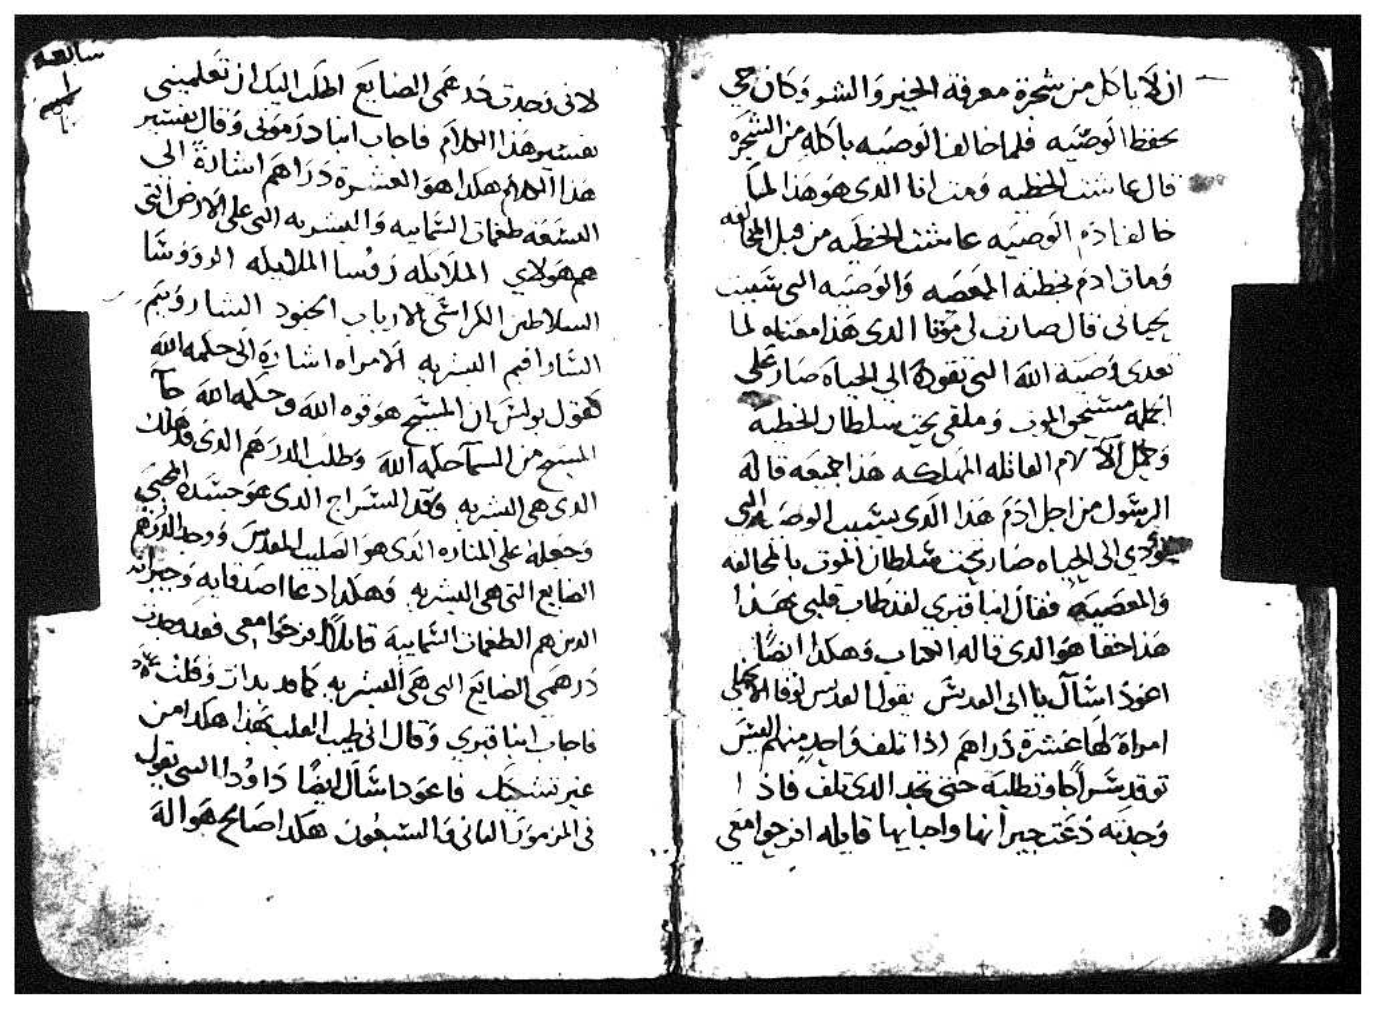 ان لا ياكل من شجرة معرفة الخير والشر وكان حي
بحفظ الوصيه فلما خالف الوصيه باكله من الشجره
قال عاشت الخطيه ومت انا الدى هو هذا لما
خالف ادم الوصيه عاشت الخطيه من قبل المخالفه
ومات ادم بخطية المعصيه والوصيه التى سببت
حياتى قال صارت لى موتا الدى هذا معناه لما
تعدى وصية الله التى تقوده الى الحياه صار على
الجمله مستحق الموت وملقى تحت سلطان الخطية
وحمل الآلام القاتله المهلكه هذا جميعه قاله
الرسول من اجل ادم هذا الذى بسبب الوصيه التى
تؤدي الى الحياه صار تحت سلطان الموت بالمخالفه
والمعصيه فقال انبا قبري لقد طاب قلبى بهذا
هذا حقا هو الدى قاله الكتاب وهكدا ايضًا
اعود اسآل يا ابى القديس بقول القديس لوقا الانجيلى
امراة لها عشرة دراهم اذا تلف واحد منهم اليس
توقد سراجا وتطلبه حتى تجد الدى تلف فاذا
وجدته دعت جيرانها واحبايها قايله افرحوا معي
لانى وجدت درهمى الضايع اطلب اليك ان تعلمنى
تفسير هذا الكلام فاجاب انبا درمونى وقال تفسير
هذا الكلام هكدا هو العشرة دراهم اشارة الى
التسعه طغمات السمايه والبشريه التى على الارض التى
هم هولاي الملايكه روسا الملايكه الرووسا
السلاطين الكراسى الارباب الجنود الشاروبيم
السارافيم البشريه الامراه اشارة الى حكمة الله
كقول بولس ان المسيح هو قوه الله وحكمه الله جآ
المسيح من السمآ حكمة الله وطلب الدرهم الدى قد هلك
الدى هى البشريه وقد السراج الدى هو جسده المحيى
وجعله على المناره الدى هو الصليب المقدس ووجد الدرهم
الضايع التى هى البشريه وهكدا دعا اصدقايه وجيرانه
الدين هم الطغمات السمايية قايلًا افرحوا معى فقد وجدت
درهمى الضايع التى هى البشريه كما قد بدات وقلت
فاجاب انبا قبري وقال انى طيب القلب بهذا هكدا من
غير تشكك فاعود اسآل ايضًا داوُد النبى يقول
فى المزمور الثانى والسبعون هكدا صالح هو اله